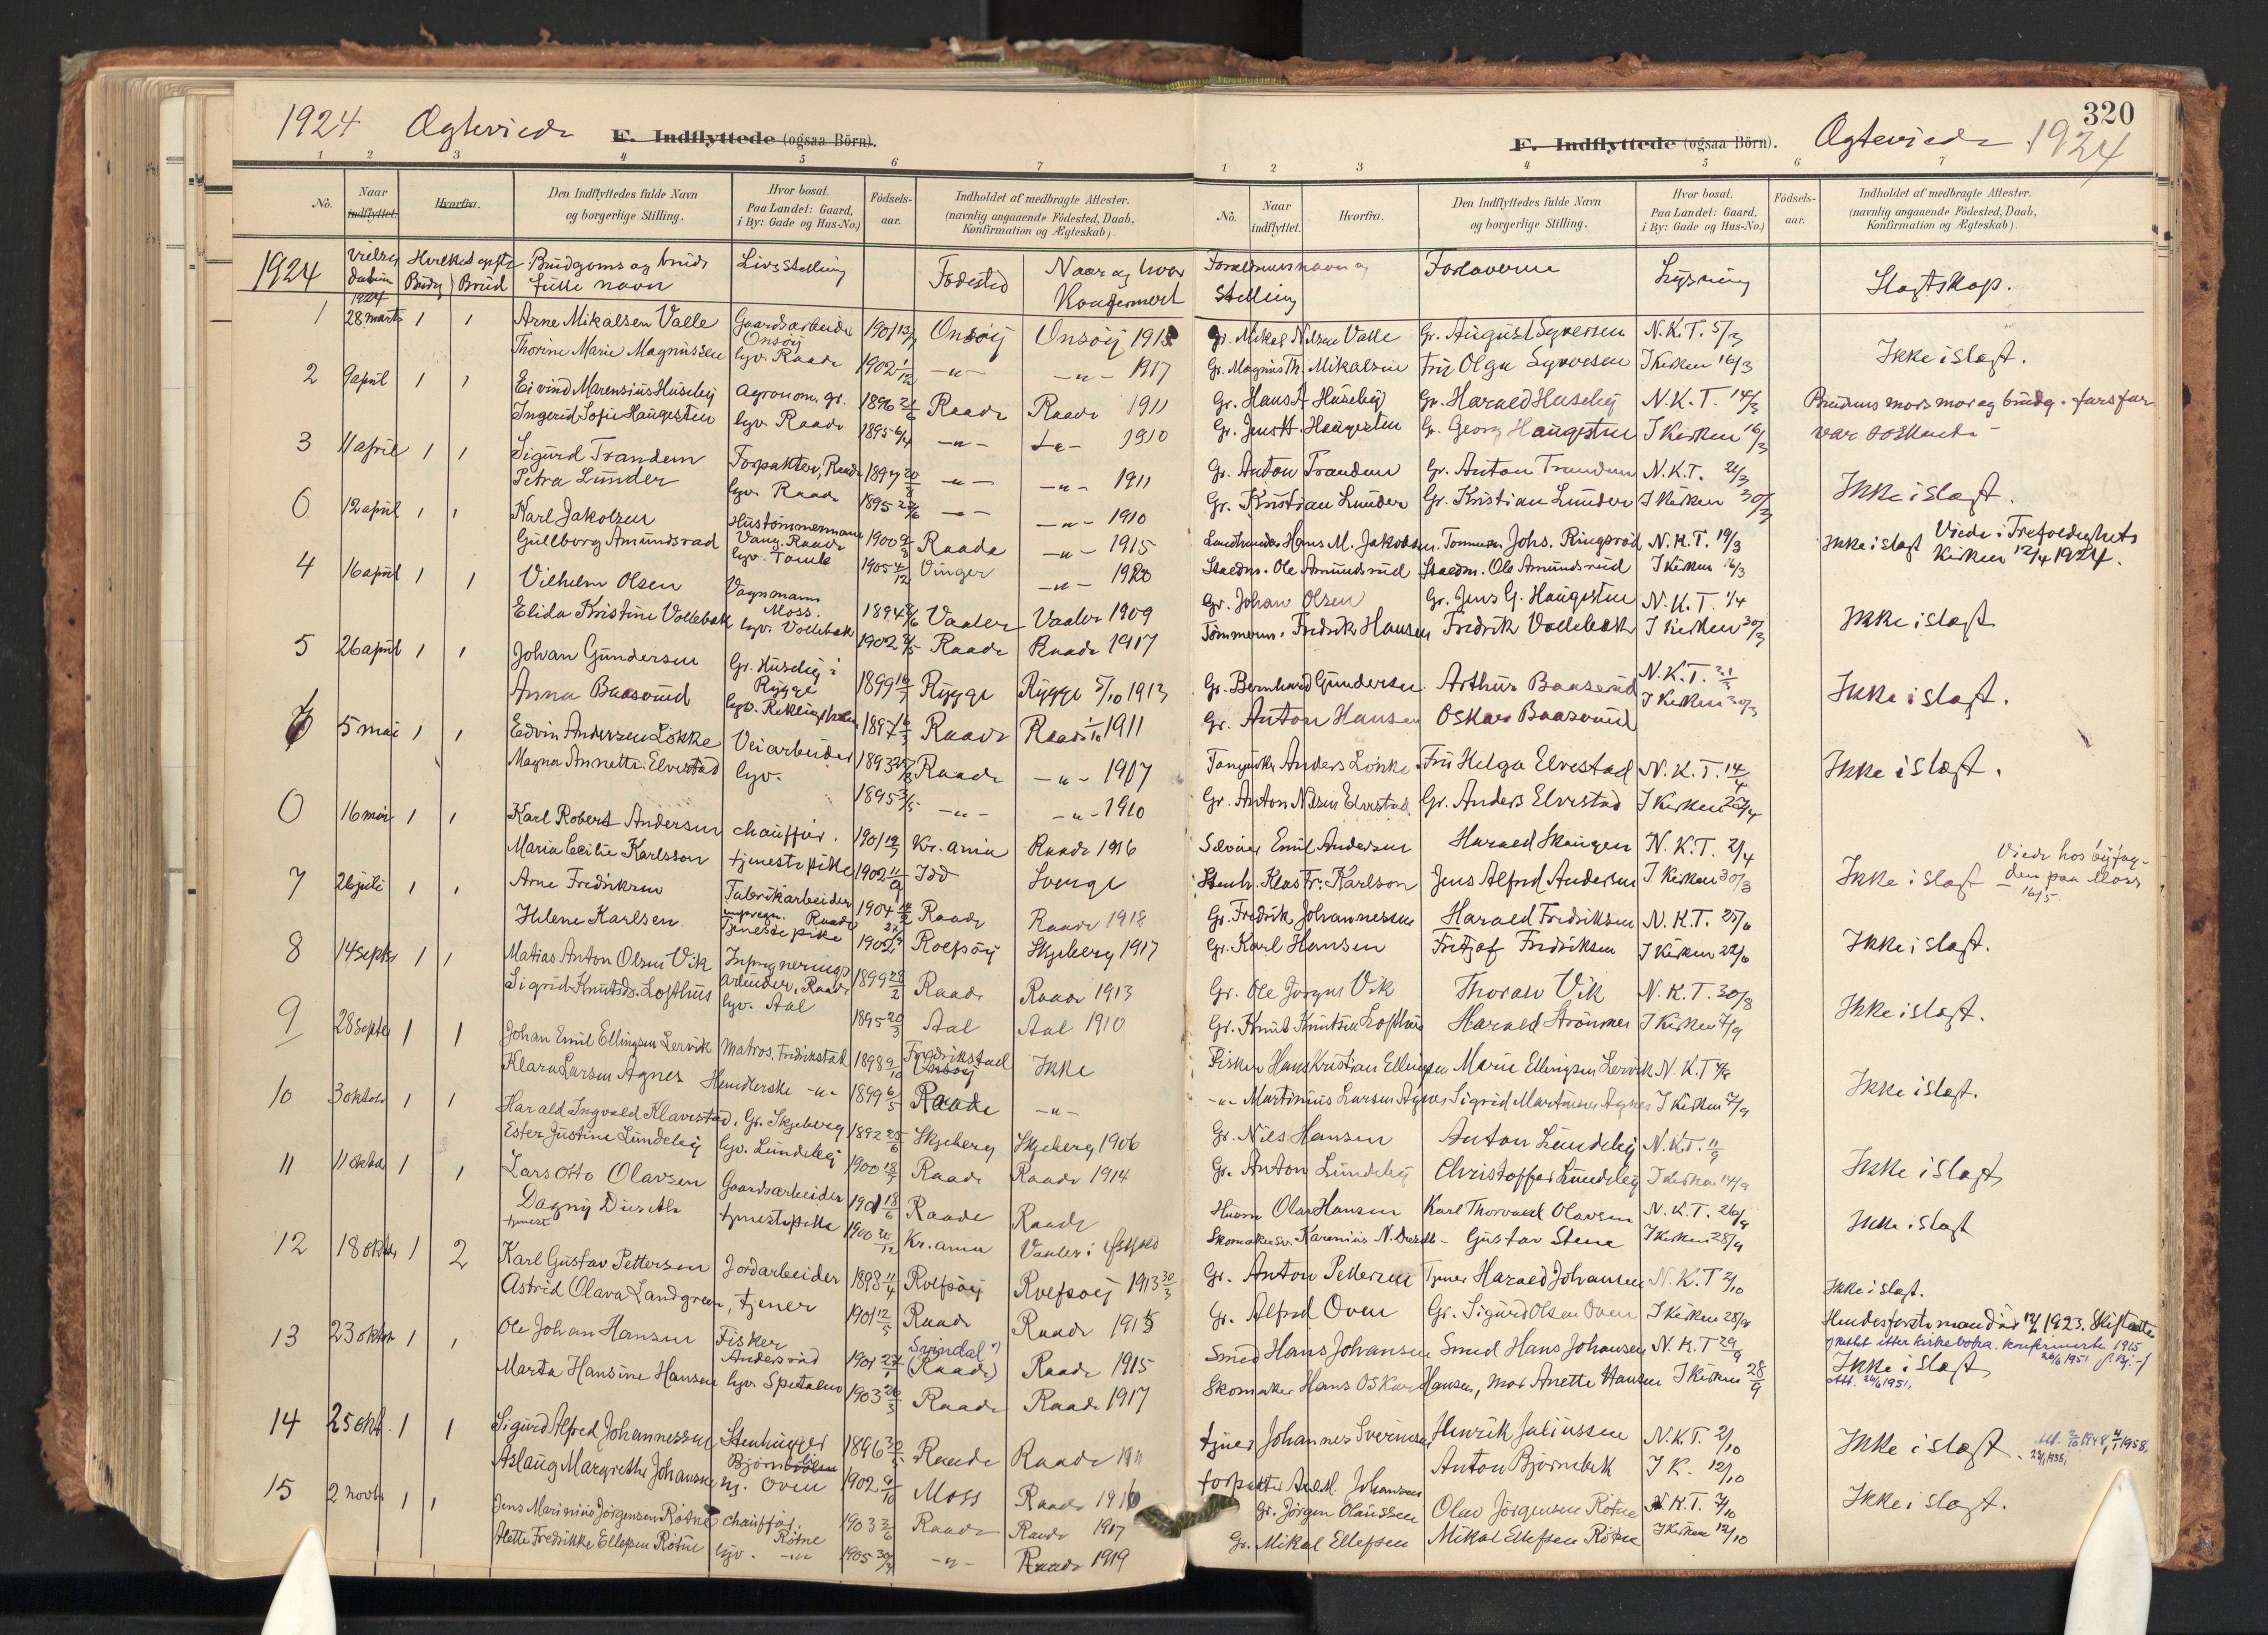 1924 Ægteviede
F. Indflyttede (ogsaa Börn).
1 2 3 4 5 6 7
No. Naar indflyttet. Hvorfra. Den Indflyttedes fulde Navn og borgerlige Stilling. Hvor bosat. Paa Landet: Gaard, i By: Gade og Hus-No.) Födsels-aar. Indholdet af medbragte Attester. (navnlig angaaende Födested, Daab, Konfirmation og Ægteskab).
1924 Brudgoms og bruds fulle navn Livsstelling Fodested Naar og hvor Konfirmert
1924
1 28 marts 1 1 Arne Mikalsen Valle Gaardsarbeider Onsöy 1901 Onsöy Onsöy
Thorine Marie Magnussen hjv. Raade 1902 1/12 -"- -"- 1917
2 9 april 1 1 Eivind Marensius Huseby agronom. gr. 1896 Raade Raade 1911
Ingerid Sofie Haugesten hjv. Raade 1895 6/4 -"- 1910
3 11 april 1 1 Sigurd Trandem Forpakter, Raade 1897 -"- -"- 1911
Petra Lunder hjv. Raade 1895 -"- -"- 1910
0 12 april 1 1 Karl Jakobsen Hustömmermann Vang. Raade 1900 Raade -"- 1915
Gullborg Amundsrød hjv. Tomb 1905 4/12 Vinger -"- 1920
4 16 april 1 1 Vilhelm Olsen Vognmann Moss. 1894 Vaaler Vaaler 1909
Elida Kristine Vollebæk hjv. Vollebæk 1902 Raade Raade 1917
5 26 april 1 1 Johan Gundersen Gr. Huseby i Rygge 1899 Rygge Rygge 5/10 1913
Anna Baaserud hjv. 1897 Raade Raade 1/10 1911
6 5 mai 1 1 Edvin Andersen Løkke Veiarbeider 1893 Raade -"- 1907
Magna Annette Elvestad hjv. 1895 3/5 -"- -"- 1910
0 16 mai 1 1 Karl Robert Andersen chauffør. 1901 Kr.ania Raade 1916
Maria Cecilie Karlsson tjenestepike 1902 11/9 Idd Sverige
7 26 juli 1 1 Arne Fredriksen Fabrikarbeider Raade 1904 Raade Raade 1918
Helene Karlsen Tjenestepike 1902 Rolfsøy Skjeberg 1917
8 14 septbr 1 1 Matias Anton Olsen Vik Impregnerings arbeider, Raade 1899 28/2 Raade Raade 1913
Sigrid Knutsdt. Lofthus hjv. Aal 1895 20/3 Aal Aal 1910
9 28 septbr 1 1 Johan Emil Ellingsen Lervik matros. Fredrikstad 1898 9/10 Fredrikstad Ikke
Klara Larsen Agnes Hendlerske -"- 1899 6/5 Raade -"-
10 3 oktobr 1 1 Harald Ingvald Klavestad, Gr. Skjeberg 1892 25/6 Skjeberg Skjeberg 1906
Ester Justine Lundeby hjv. Lundeby 1900 Raade Raade 1914
11 11 oktbr 1 1 Lars Otto Olavsen Gaardsarbeider 1901 18/6 Raade Raade
Dagny Dreseth tjenestepike 1900 20/12 Kr.ania Vaaler i Østfold
tjenest
12 18 oktbr 1 2 Karl Gustav Pettersen Jordarbeider 1898 11/4 Rolfsøy Rolfsøy 1913 30/3
Astrid Olava Landgreen, tjener 1901 12/5 Raade Raade 1915
13 23 oktbr 1 1 Ole Johan Hansen Fisker Andersrød 1901 Svindal (Raade) Raade 1915
Marta Hansine Hansen hjv. Spetalen 1903 20/3 Raade Raade 1917
14 25 okt. 1 1 Sigurd Alfred Johannessen Stenhugger 1896 Raade Raade 1911
Aslaug Margrethe Johansen hj. Oven 1902 Moss Raade 1916
15 2 novbr 1 1 Jens Marinius Jörgensen Rötne chauffør. Rötne 1903 Raade Raade 1917
Alette Fredrikke Ellefsen Rötne hjv. -"- 1905 -"- Raade 1919
320
F. Indflyttede (ogsaa Börn). Ægteviede 1924
1 2 3 4 5 6 7
No. Naar indflyttet. Hvorfra. Den Indflyttedes fulde Navn og borgerlige Stilling. Hvor bosat. Paa Landet: Gaard, i By: Gade og Hus-No.) Födsels-aar. Indholdet af medbragte Attester. (navnlig angaaende Födested, Daab, Konfirmation og Ægteskab).
Foreldrenes navn og Stelling Forloverne Lysning Slegtskap.
Gr. Mikal Nilsen Valle Gr. August Syversen N.K.T. 5/3
Gr. Magnus Th. Mikalsen Fru Olga Syversen I Kirken 16/3 Ikke i slegt.
Gr. Hans A Huseby Gr. Harald Huseby N.K.T. 14/3 Brudens mors mor og brudg. farsfar
Gr. Jens H. Haugesten Gr. Georg Haugesten I Kirken 16/3 var søskende
Gr. Anton Trandem Gr. Anton Trandem N.K.T. 21/3
Gr. Kristian Lunder Gr. Kristian Lunder I Kirken 30/3 Ikke i slegt.
Hans M. Jakobsen. Johs. Ringsrød N.K.T. 19/3 Ikke i slegt Viede i Trefoldighets
Ole Amundsrud Ole Amundsrud I Kirken 16/3 Kirken 12/4 1924.
Gr. Johan Olsen Gr. Jens G. Haugesten N.K.T. 1/4
Tømmerm. Fredrik Hansen Fredrik Vollebæk I Kirken 30/3 Ikke i slegt
Gr. Bernhard Gundersen Arthur Baaserud N.K.T. 31/3
Gr. Anton Hansen Oskar Baaserud I Kirken 30/3 Ikke i slegt.
Anders Løkke Fru Helga Elvestad N.K.T. 14/4 Ikke i slegt.
Gr. Anton Nilsen Elvestad Gr. Anders Elvestad I Kirken 27/4
Emil Andersen Harald Skaugen N.K.T. 2/4
Stenh. Klas Fr. Karlson Jens Alfred Andersen I Kirken 30/3 Ikke i slegt Viede hos byfogden paa Moss 16/5.
Gr. Fredrik Johannessen Harald Fredriksen N.K.T. 25/6
Gr. Karl Hansen Fritjof Fredriksen I Kirken 22/6 Ikke i slegt.
Gr. Ole Jörgns Vik Thoralv Vik N.K.T. 30/8
Gr. Knut Knutsen Lofthus Harald I Kirken 7/9 Ikke i slegt.
Fisker Hans Kristian Ellingsen Marie Ellingsen Lervik N.K.T
-"- Martinius Larsen Agnes Sigrid Martinsen Agnes I Kirken 7/9 Ikke i slegt.
Gr. Nils Hansen Anton Lundeby N.K.T. 11/9
Gr. Anton Lundeby Christoffer Lundeby I Kirken 14/9 Ikke i slegt
Olav Hansen Karl Thorvald Olavsen N.K.T. 26/9
Karenius N. Dreseth - Gustav Stene I Kirken 28/9 Ikke i slegt
Gr. Anton Pettersen Tjener Harald Johansen N.K.T 2/10 Ikke i slegt.
Gr. Alfred Oven Gr. Sigurd Olsen Oven I Kirken 28/9 Hendes første mand død 1923. Skifteatte
Smed Hans Johansen Smed Hans Johansen N.K.T 29/9 rettet etter kirkeboka. konfirmerte 1915 26/6 1951
Skomaker Hans Oskar Hansen, mor Anette Hansen I Kirken 28/9 Ikke i slegt
Att. 26/6 1951.
tjner Johannes Syvertsen Henrik Juliussen N.K.T. 2/10 Ikke i slegt.
forpakter Johansen Anton Bjørnebek I K. 12/10
Gr. Jörgen Olaussen Olav Jörgensen Rötne N.K.T. 7/10 Ikke i slegt.
Gr. Mikal Ellefsen Mikal Ellefsen Rötne I Kirken 12/10